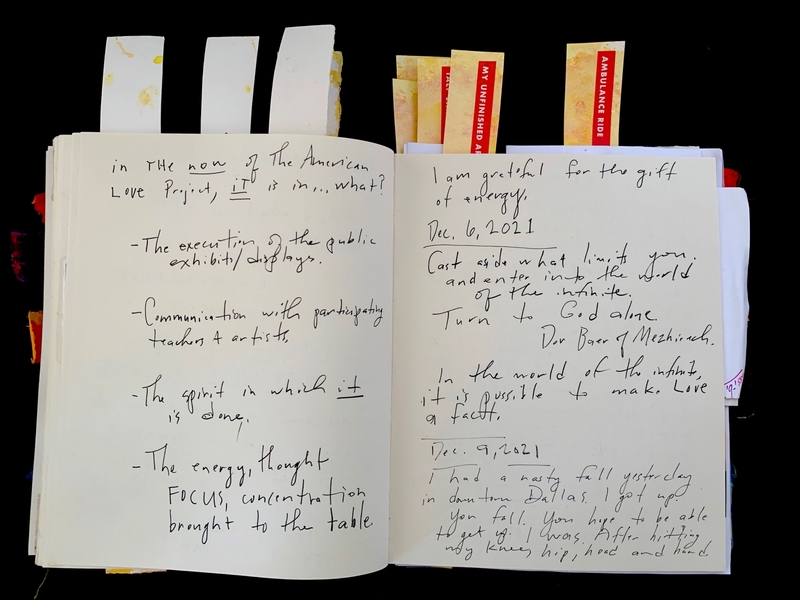 MY UNFINISHED
AMBULANCE RIDE
in THE now of The American
Love Project, iT is in... what?
- The execution of the public
exhibits/displays.
- Communication with participating
teachers & artists.
- The spirit in which it
is done.
- The energy, thought
FOCUS, concentration
brought to the table
I am grateful for the gift
of energy.
Dec. 6, 2021
Cast aside what limits you
and enter into the world
of the infinite.
Turn to God alone
Dov Baer of Mezhirach.
In the world of the infinite,
it is possible to make Love
a fact.
Dec. 9, 2021
I had a nasty fall yesterday
in downtown Dallas. I got up.
You fall. You hope to be able
to get up. I was. After hitting
my knees, hip, head and hand.